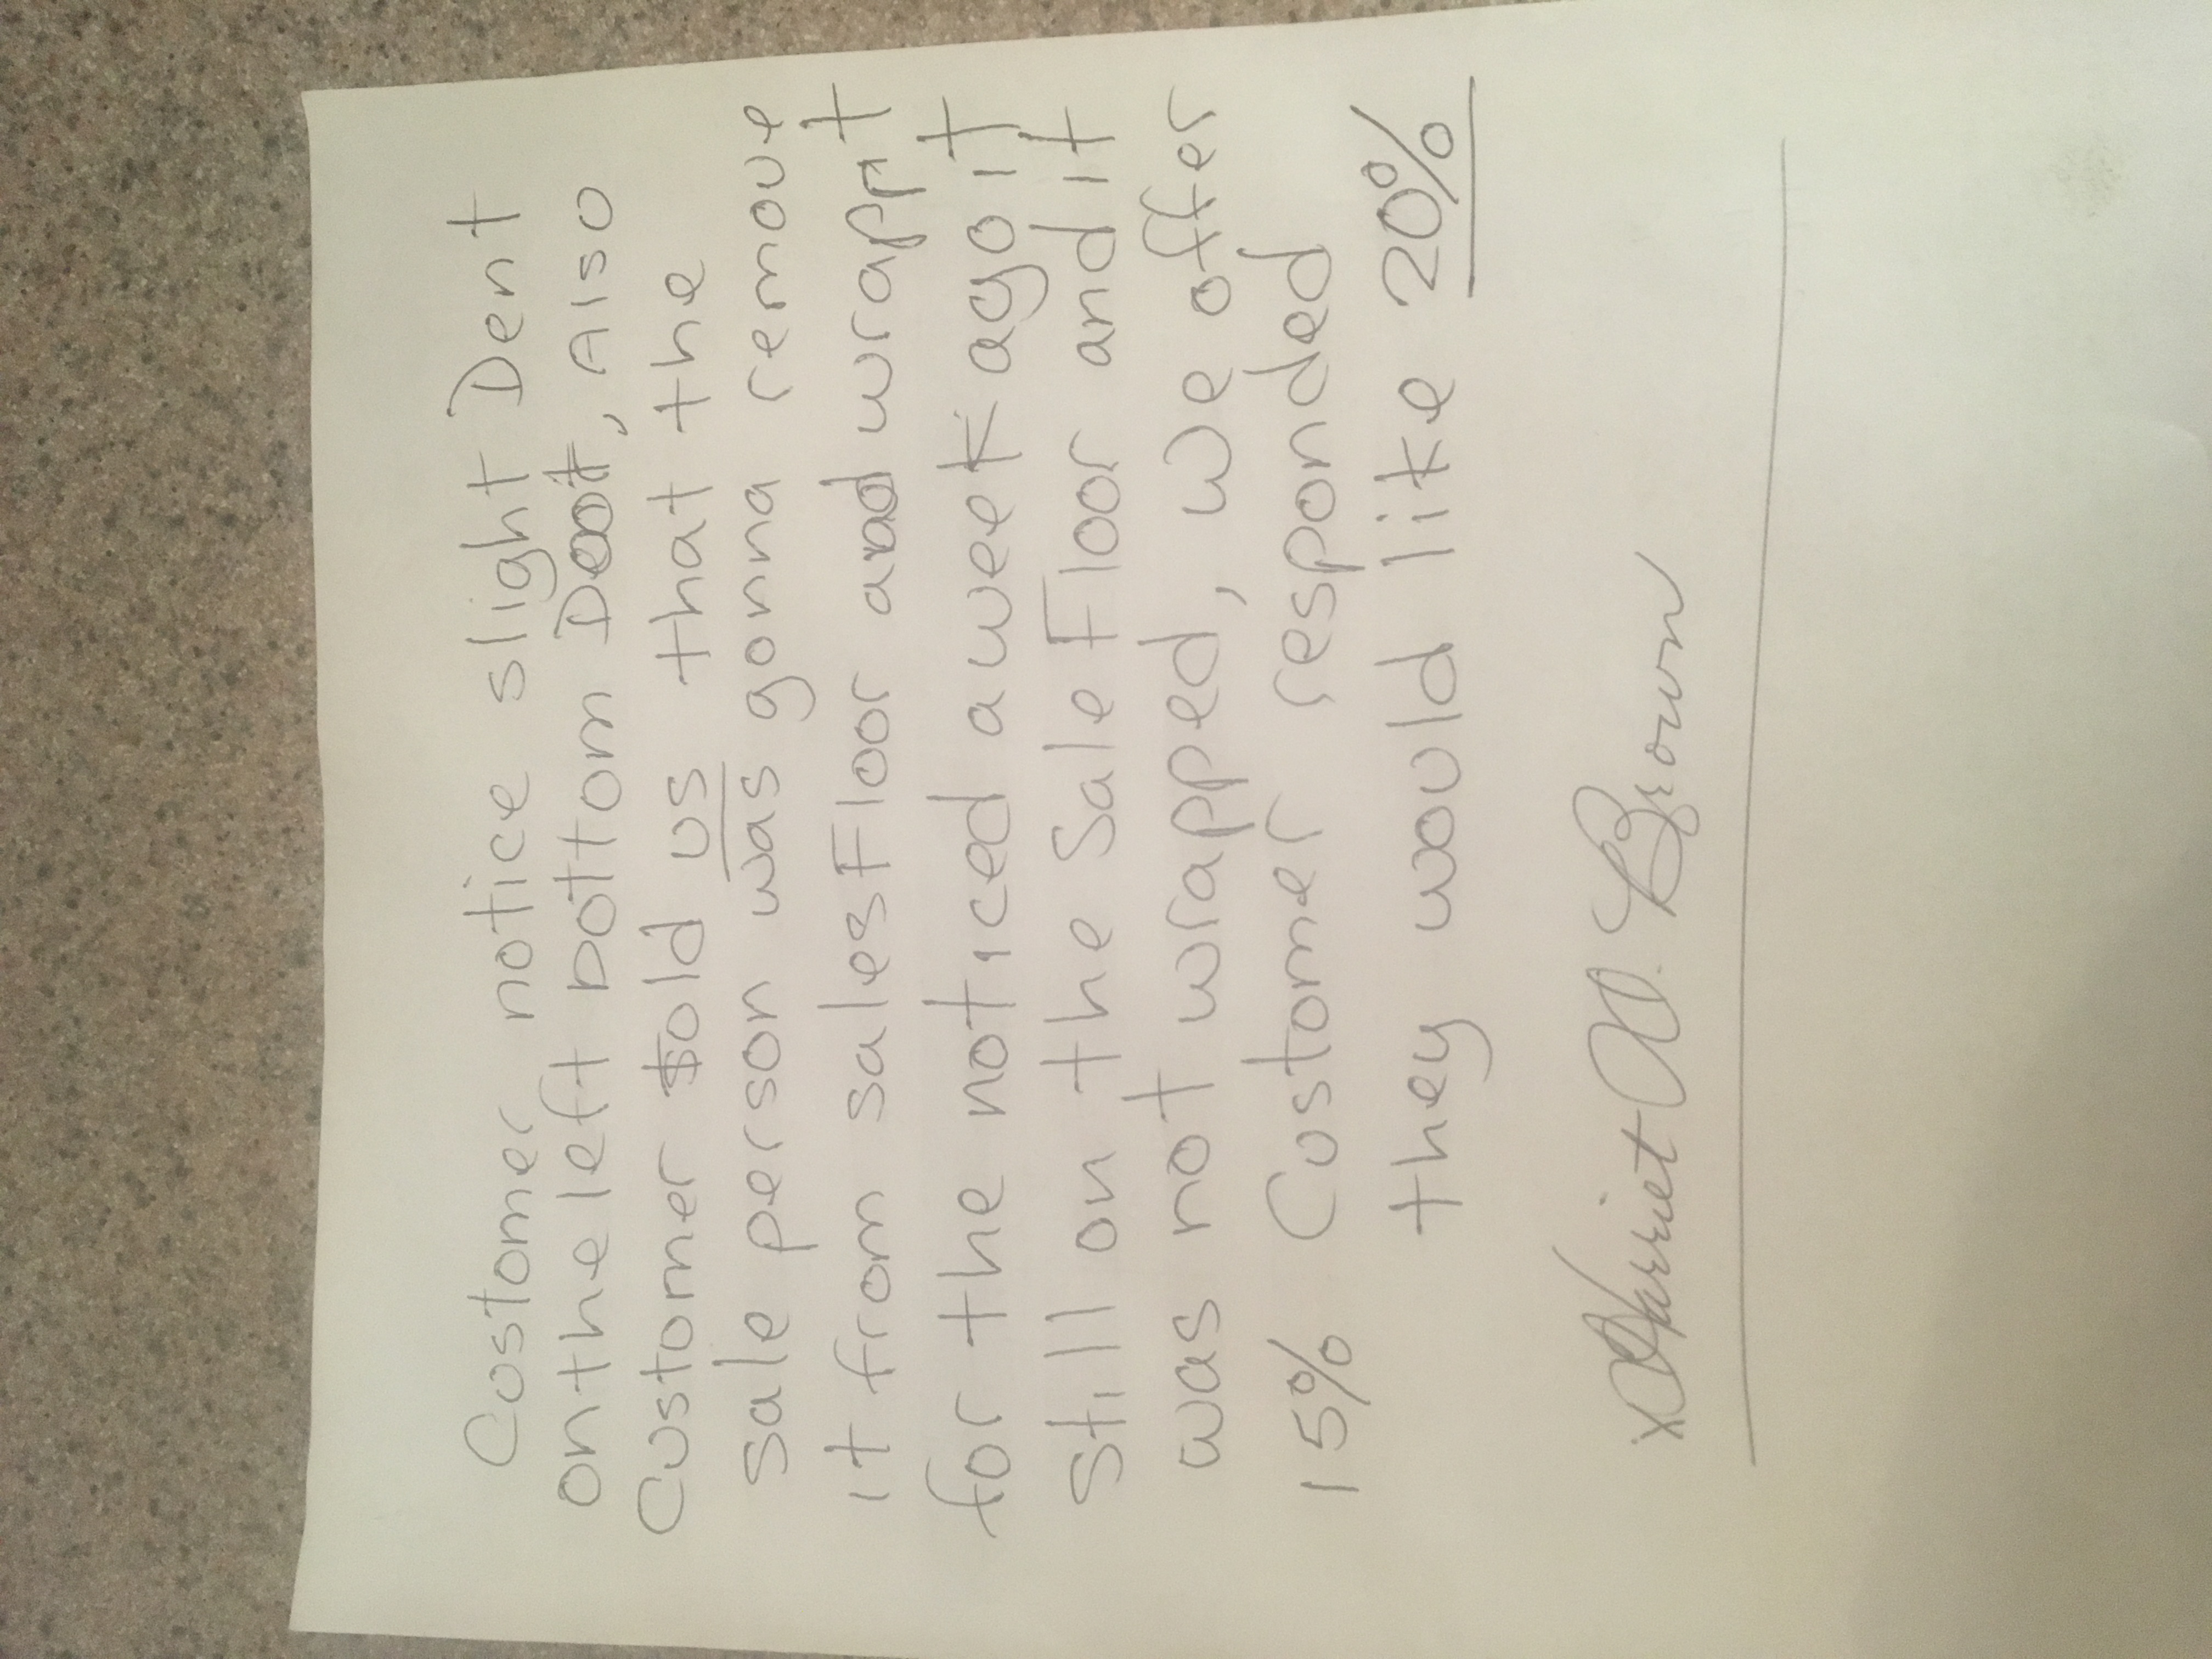 Customer notice slight Dent
on the left bottom Door, Also
Customer told us that the
sale person was gonna remove
it from sales Floor and wrap it
for the noticed a week ago it
still on the Sale Floor and it
was not wrapped, we offer
15% Customer responded
they would like 20%
x Harriet W. Brown